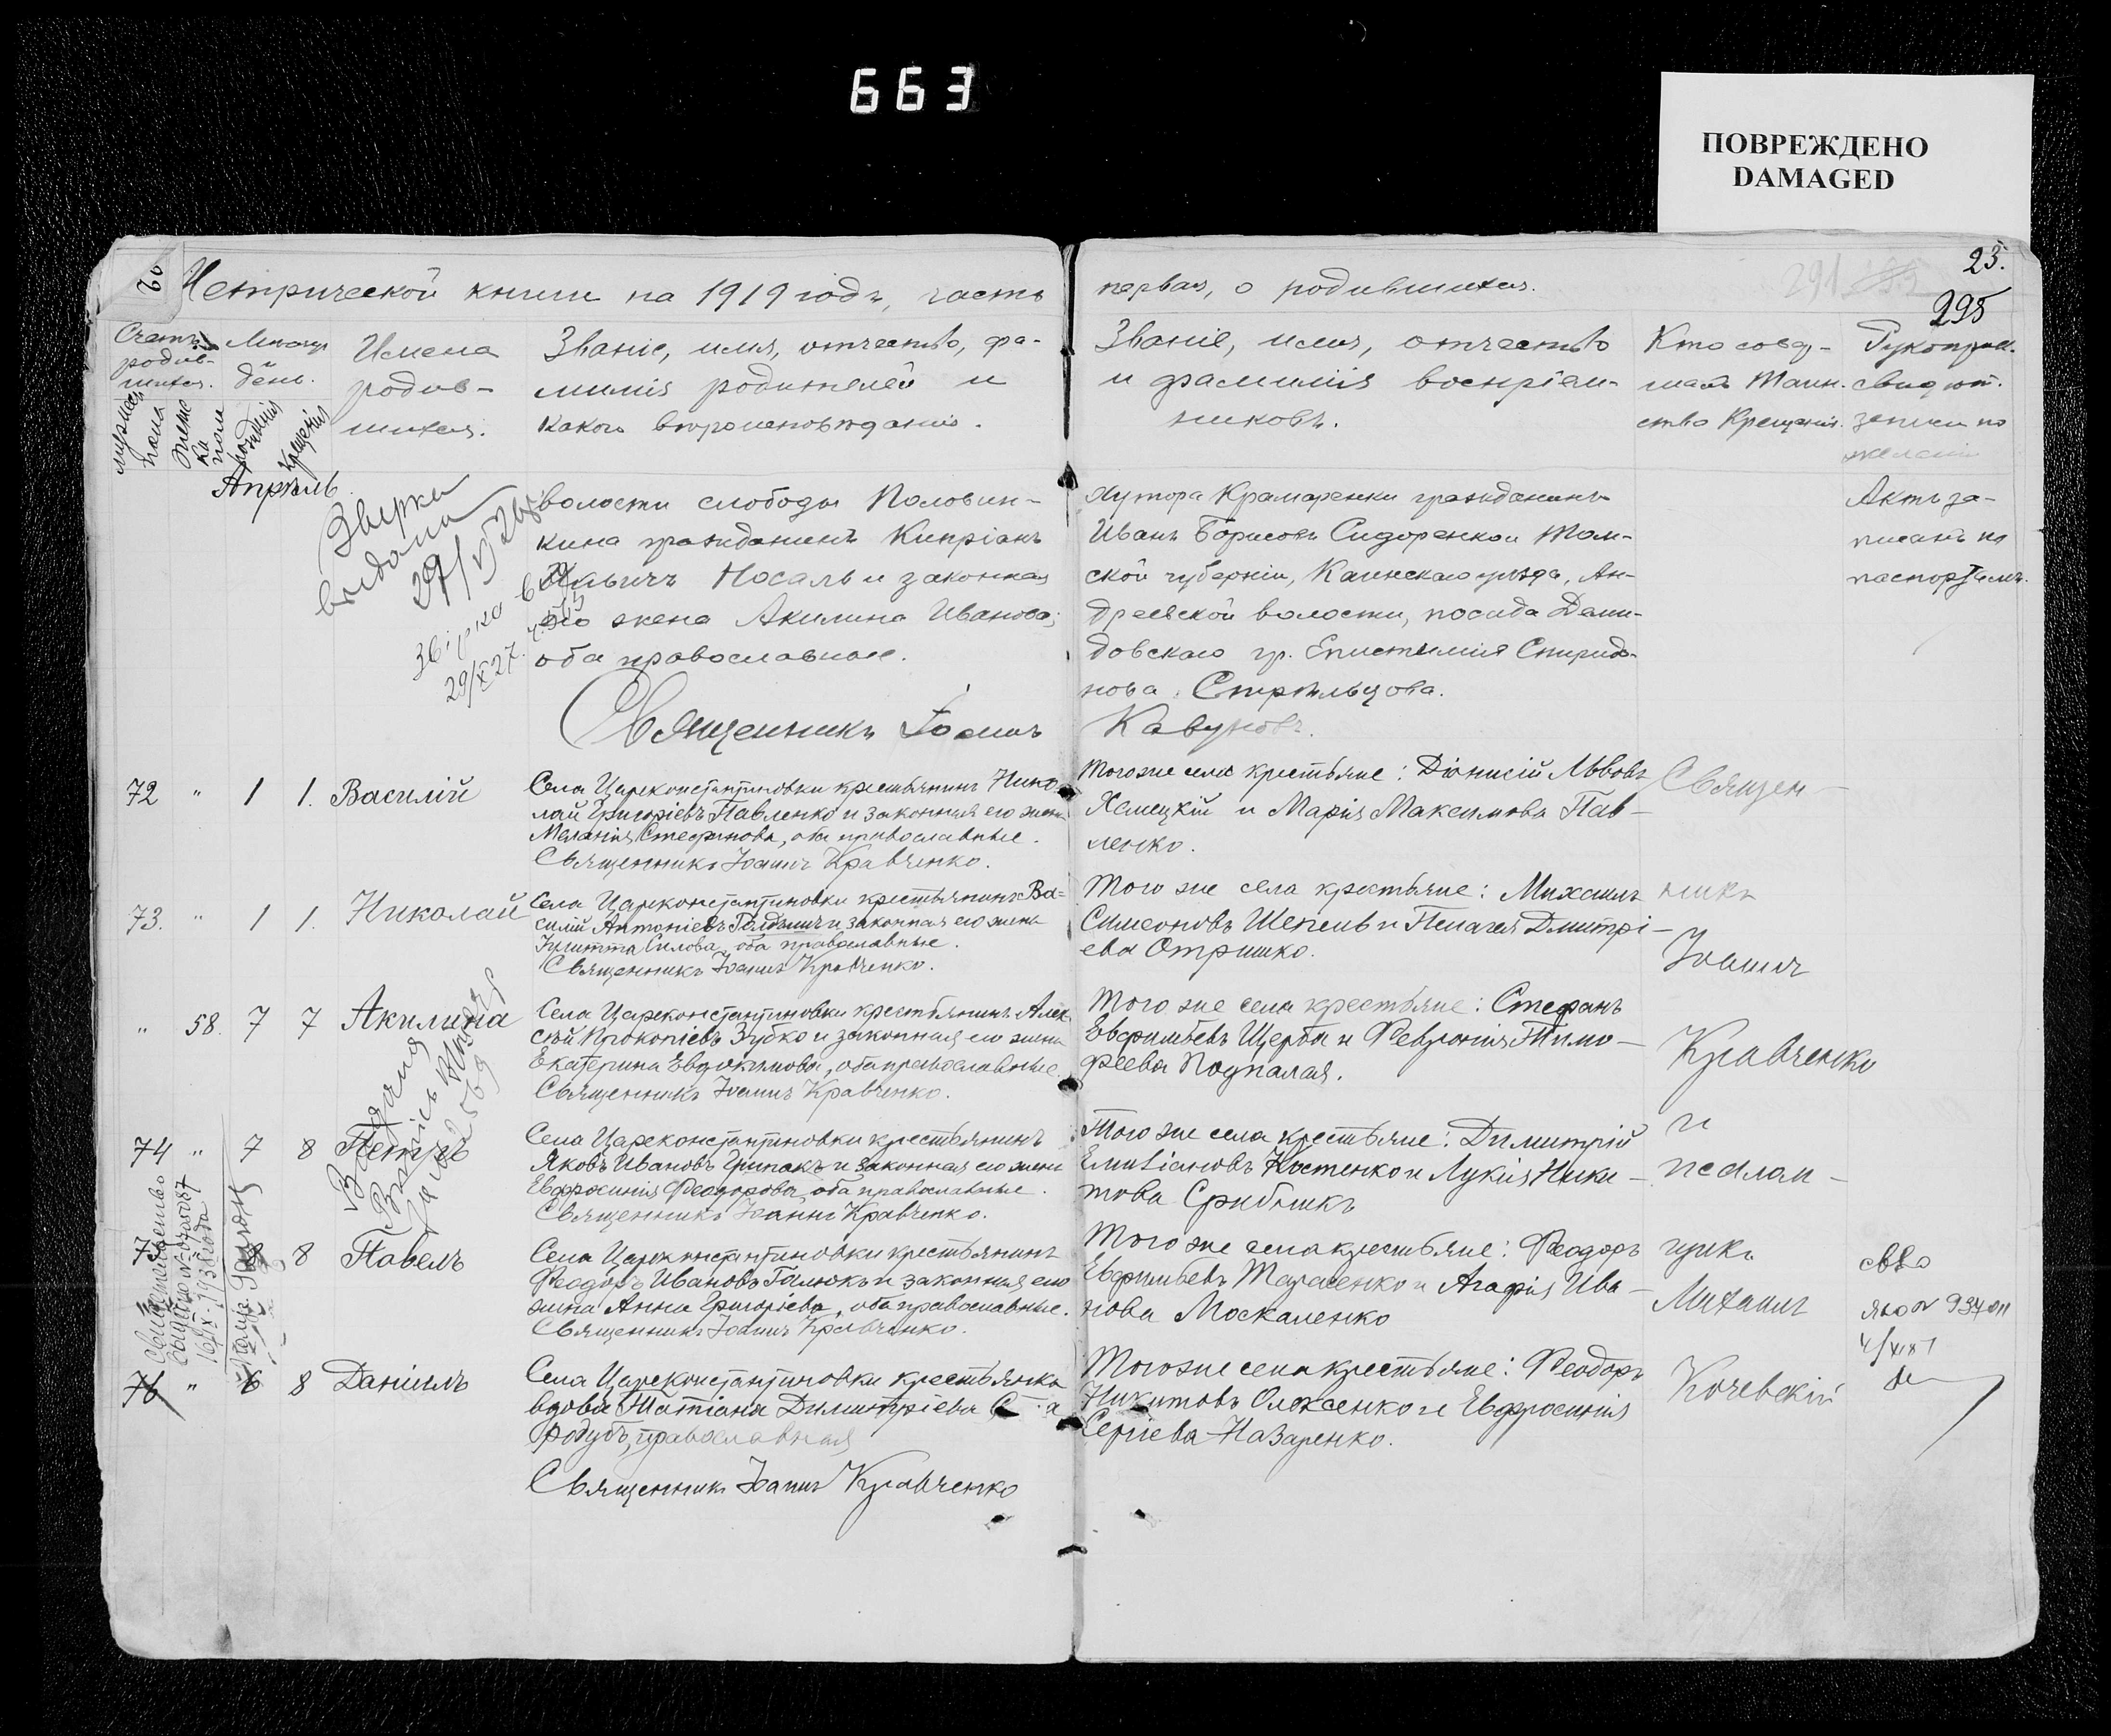 663
ПОВРЕЖДЕНО
DAMAGED
Метрической книги на 1919 годъ, часть
первая, о родившихся.
25.
295
Счетъ родив-
шихся.
мужеска пола
женска пола
Мѣсяцъ и день.
рожденія
крещенія
Имена
родив-
шихся.
Званіе, имя, отчество, фа-
милія родителей и
какого вѣроисповѣданія.
Званіе, имя, отчество
и фамилія воспріем-
никовъ.
Кто совер-
шалъ Таин-
ство Крещенія.
Рукоприк.
свидѣт.
записи по
желанію
Апрѣль.
Звѣрка
видана
29/VI 26
Звірка
29/X 27.
волости слободы Половин-
кина гражданинъ Кипріанъ
Носаль и законная
его жена Акилина Иванова;
оба православные.
Священникъ Іоаннъ
хутора Крамаренки гражданинъ
Иванъ Борисовъ Сидоренко и Том-
ской губерніи, Каинскаго уѣзда, Ан-
дреевской волости, посада Деми-
довскаго гр. Епистимія Спиридо-
нова Стрѣльцова.
Кавуновъ.
Актъ за-
писанъ по
паспортамъ.
72 " 1 1. Василій
Села Цареконстантиновки крестьянинъ Нико-
лай Григоріевъ Павленко и законная его жена
Меланія Стефанова, оба православные.
Священникъ Іоаннъ Кравченко.
Того же села крестьяне: Діонисій Львовъ
Хмецкій и Марія Максимова Пав-
ленко.
Священ-
73. " 1 1. Николай
Села Цареконстантиновки крестьянинъ Ва-
силій Антоніевъ и законная его жена
Іулитта Силова, оба православные.
Священникъ Іоаннъ Кравченко.
Того же села крестьяне: Михаилъ
Симеоновъ Шепель и Пелагея Дмитрі-
ева Отришко.
никъ
Іоаннъ
" 58. 7 7 Акилина
Села Цареконстантиновки крестьянинъ Алек-
сѣй Прокопіевъ Зубко и законная его жена
Екатерина Евдокимова, оба православные.
Священникъ Іоаннъ Кравченко.
Того же села крестьяне: Стефанъ
Евфимьевъ Щерба и Февронія Тимо-
феева Подпалая.
Кравченко
74 " 7 8 Петръ
Села Цареконстантиновки крестьянинъ
Яковъ Ивановъ Грипакъ и законная его жена
Евфросинія Феодорова, оба православные.
Священникъ Іоаннъ Кравченко.
Того же села крестьяне: Димитрій
Емиліановъ Костенко и Лукія Ники-
това Срибникъ
и
псалом-
75 " 8 8 Павелъ
Села Цареконстантиновки крестьянинъ
Феодоръ Ивановъ Галюкъ и законная его
жена Анна Григоріева, оба православные.
Священникъ Іоаннъ Кравченко.
Того же села крестьяне: Феодоръ
Евфимьевъ Тарасенко и Агафія Ива-
нова Москаленко
щикъ
Михаилъ
свво
76 " 6 8 Даніилъ
Села Цареконстантиновки крестьянка
вдова Татіана Димитріева
православная
Священникъ Іоаннъ Кравченко
Того же села крестьяне: Феодоръ
Никитовъ Олексенко и Евфросинія
Сергіева Назаренко.
Кочевскій
Свидетельство
выдано